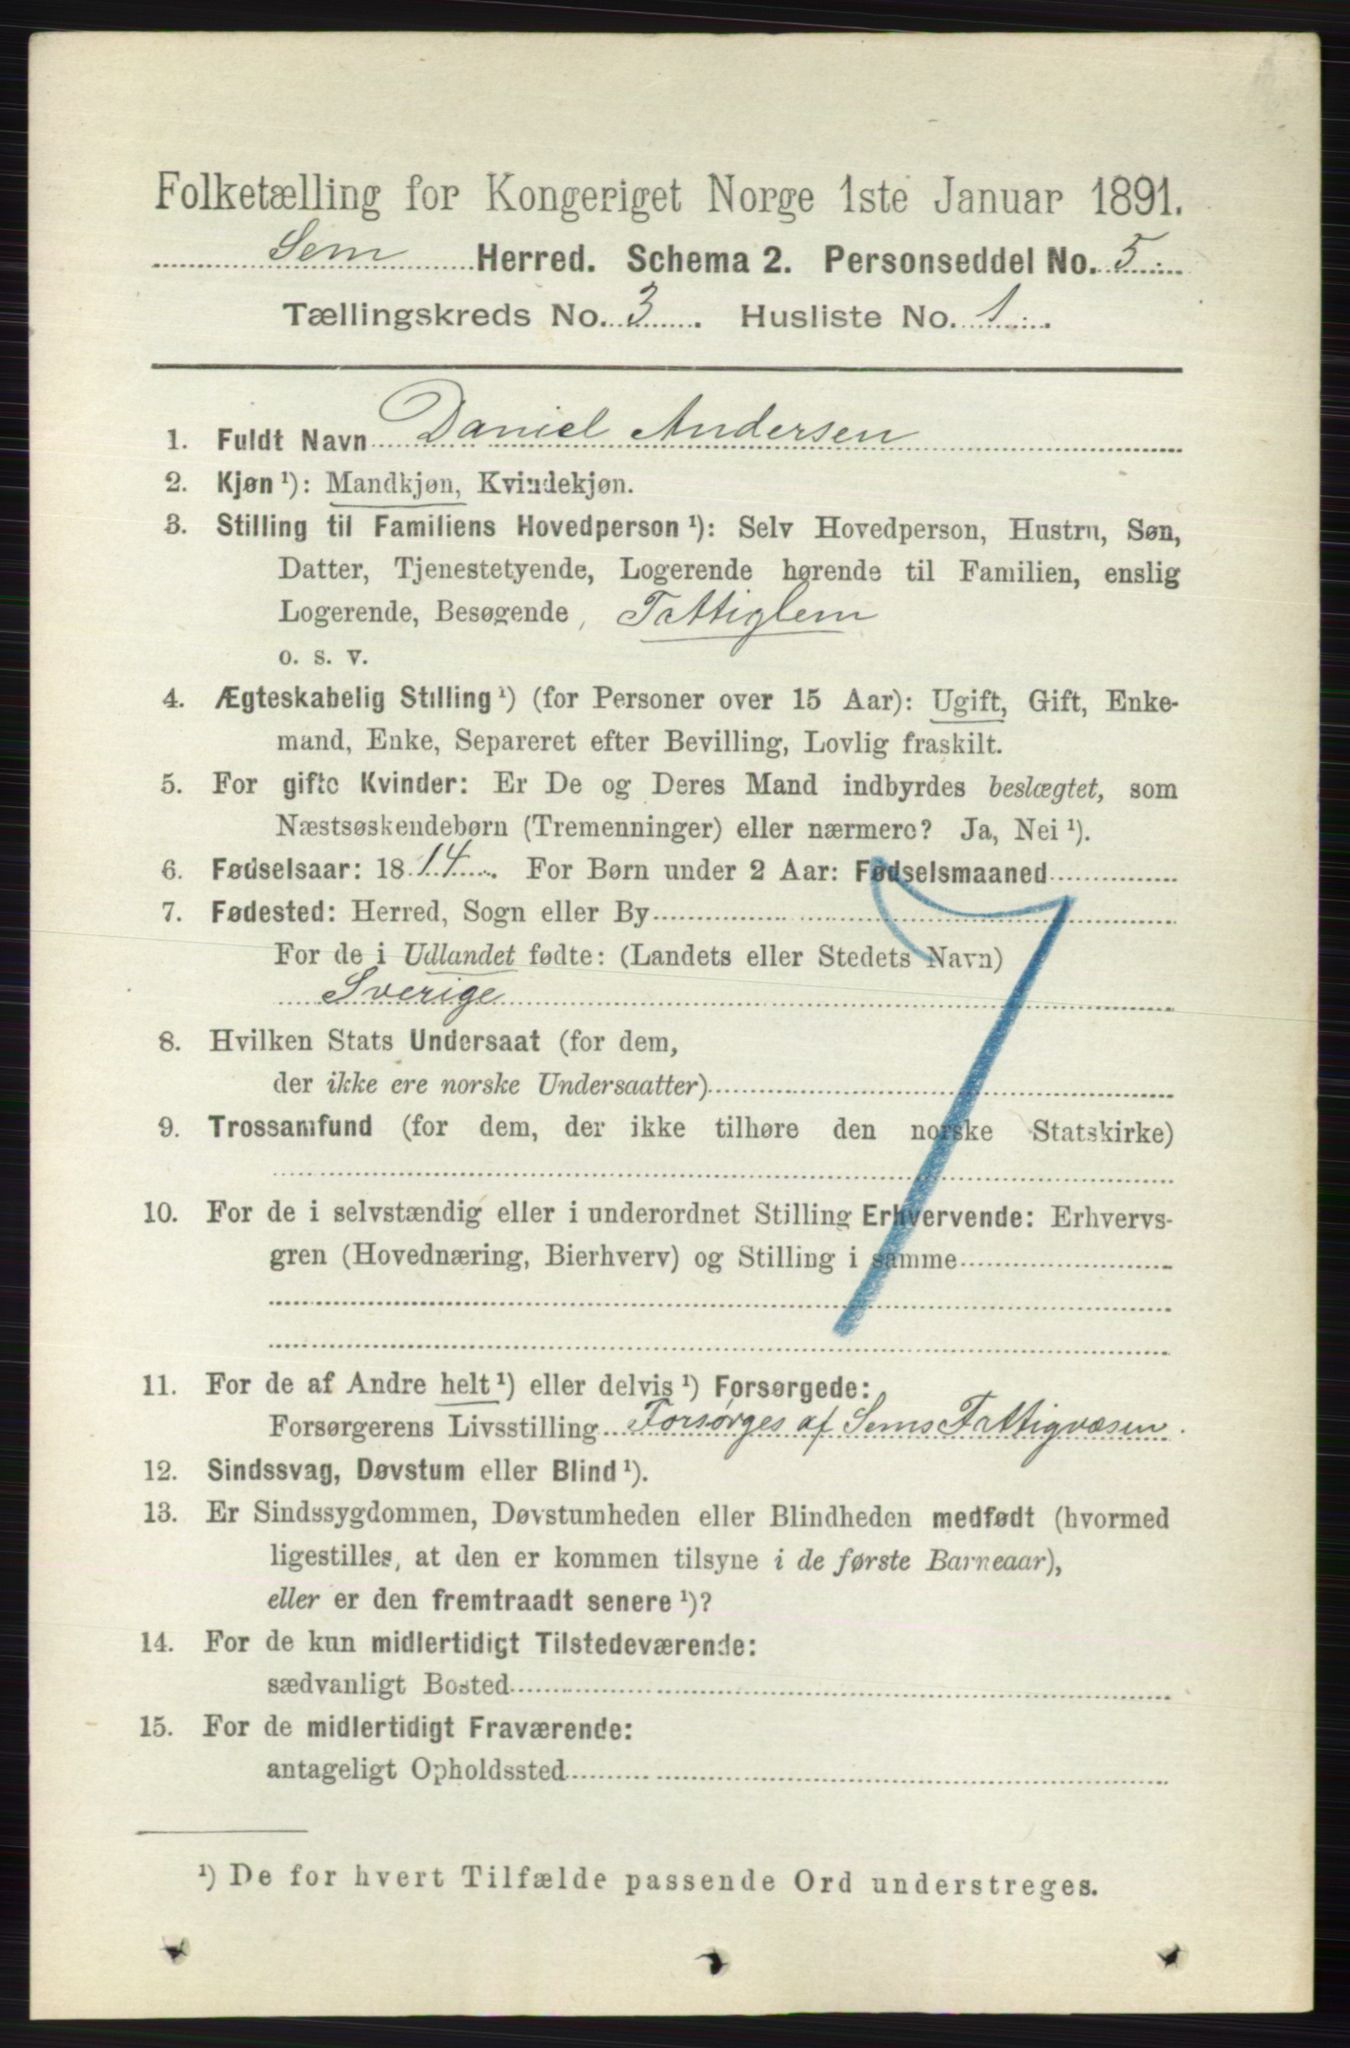 Folketælling for Kongeriget Norge 1ste Januar 1891.
Sem Herred. Schema 2. Personseddel No. 5
Tællingskreds No. 3. Husliste No. 1.
1. Fuldt Navn Daniel Andersen
2. Kjøn ¹): Mandkjøn, Kvindekjøn.
3. Stilling til Familiens Hovedperson ¹): Selv Hovedperson, Hustru, Søn,
Datter, Tjenestetyende, Logerende hørende til Familien, enslig
Logerende, Besøgende, Fattiglem
o. s. v.
4. Ægteskabelig Stilling ¹) (for Personer over 15 Aar): Ugift, Gift, Enke-
mand, Enke, Separeret efter Bevilling, Lovlig fraskilt.
5. For gifte Kvinder: Er De og Deres Mand indbyrdes beslægtet, som
Næstsøskendebørn (Tremenninger) eller nærmere? Ja, Nei ¹).
6. Fødselsaar: 1814. For Børn under 2 Aar: Fødselsmaaned
7. Fødested: Herred, Sogn eller By
For de i Udlandet fødte: (Landets eller Stedets Navn)
Sverige
8. Hvilken Stats Undersaat (for dem,
der ikke ere norske Undersaatter)
9. Trossamfund (for dem, der ikke tilhøre den norske Statskirke)
10. For de i selvstændig eller i underordnet Stilling Erhvervende: Erhvervs-
gren (Hovednæring, Bierhverv) og Stilling i samme
11. For de af Andre helt ¹) eller delvis ¹) Forsørgede:
Forsørgerens Livsstilling Forsørges af Sems Fattigvæsen.
12. Sindssvag, Døvstum eller Blind ¹).
13. Er Sindssygdommen, Døvstumheden eller Blindheden medfødt (hvormed
ligestilles, at den er kommen tilsyne i de første Barneaar),
eller er den fremtraadt senere ¹)?
14. For de kun midlertidigt Tilstedeværende:
sædvanligt Bosted
15. For de midlertidigt Fraværende:
antageligt Opholdssted
¹) De for hvert Tilfælde passende Ord understreges.